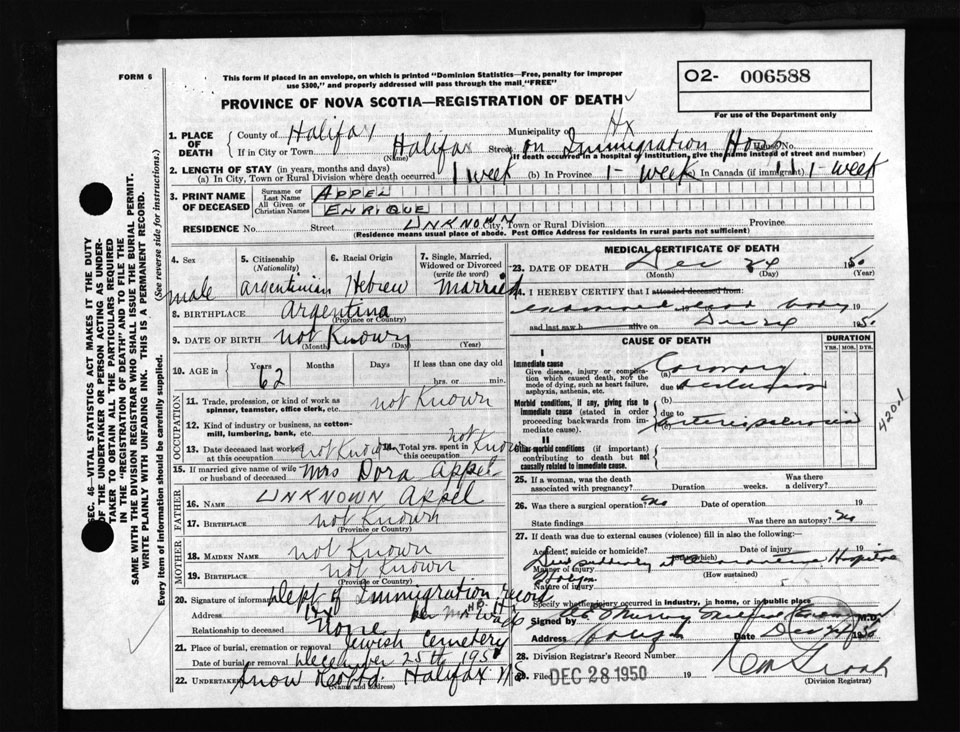 FORM 6
This form if placed in an envelope, on which is printed "Dominion Statistics—Free, penalty for improper
use $300," and properly addressed will pass through the mail "FREE"
O2- 006588
For use of the Department only
PROVINCE OF NOVA SCOTIA—REGISTRATION OF DEATH
1. PLACE OF DEATH
County of Halifax Municipality of Hx
If in City or Town Halifax Street on Immigration Hosp House No.
(Name) (If death occurred in a hospital or institution, give the name instead of street and number)
2. LENGTH OF STAY (in years, months and days)
(a) In City, Town or Rural Division where death occurred 1 week (b) In Province 1 - week (c) In Canada (if immigrant) 1 - week
3. PRINT NAME OF DECEASED
Surname or Last Name APPEL
All Given or Christian Names ENRIQUE
RESIDENCE No. Street UNKNOWN City, Town or Rural Division Province
(Residence means usual place of abode. Post Office Address for residents in rural parts not sufficient)
4. Sex male
5. Citizenship (Nationality) argentinian
6. Racial Origin Hebrew
7. Single, Married, Widowed or Divorced (write the word) Married
8. BIRTHPLACE Argentina
(Province or Country)
9. DATE OF BIRTH not Known
(Month) (Day) (Year)
10. AGE in Years 62 Months Days If less than one day old
hrs. or min.
OCCUPATION
11. Trade, profession, or kind of work as
spinner, teamster, office clerk, etc. not Known
12. Kind of industry or business, as cotton-
mill, lumbering, bank, etc.
13. Date deceased last worked at this occupation not Known 14. Total yrs. spent in this occupation not Known
15. If married give name of wife
or husband of deceased Mrs Dora Appel
FATHER
16. Name UNKNOWN Appel
17. BIRTHPLACE not Known
(Province or Country)
MOTHER
18. MAIDEN NAME not Known
19. BIRTHPLACE not Known
(Province or Country)
20. Signature of informant Dept of Immigration record
Address Hx
Relationship to deceased None
21. Place of burial, cremation or removal Jewish Cemetery
Date of burial or removal December 25th 1950
22. UNDERTAKER Snow Halifax NS
(Name and address)
MEDICAL CERTIFICATE OF DEATH
23. DATE OF DEATH Dec 24 1950
(Month) (Day) (Year)
24. I HEREBY CERTIFY that I attended deceased from:
examined dead body 19
and last saw h alive on Dec 24 1950
CAUSE OF DEATH
DURATION
YRS. MOS. DYS.
I
Immediate cause
Give disease, injury or complica-
tion which caused death, not the
mode of dying, such as heart failure,
asphyxia, asthenia, etc.
(a) Coronary
due to occlusion
Morbid conditions, if any, giving rise to
immediate cause (stated in order
proceeding backwards from im-
mediate cause).
(b)
due to
(c) arteriosclerosis
420.1
II
Other morbid conditions (if important)
contributing to death but not
causally related to immediate cause.
25. If a woman, was the death
associated with pregnancy? Duration weeks. Was there
a delivery?
26. Was there a surgical operation? No Date of operation 19
State findings Was there an autopsy? No
27. If death was due to external causes (violence) fill in also the following:
Accident, suicide or homicide? (State which) Date of injury 19
Manner of injury Died suddenly at Quarantine Hospital
(How sustained)
Nature of injury
Specify whether injury occurred in industry, in home, or in public place
Signed by Murray M.D.
Address Date Dec 1950
28. Division Registrar's Record Number
29. Filed DEC 28 1950 19
(Division Registrar)
SEC. 46—VITAL STATISTICS ACT MAKES IT THE DUTY
OF THE UNDERTAKER OR PERSON ACTING AS UNDER-
TAKER TO OBTAIN ALL THE PARTICULARS REQUIRED
IN THE "REGISTRATION OF DEATH" AND TO FILE THE
SAME WITH THE DIVISION REGISTRAR WHO SHALL ISSUE THE BURIAL PERMIT.
WRITE PLAINLY WITH UNFADING INK. THIS IS A PERMANENT RECORD.
Every item of information should be carefully supplied. (See reverse side for instructions.)